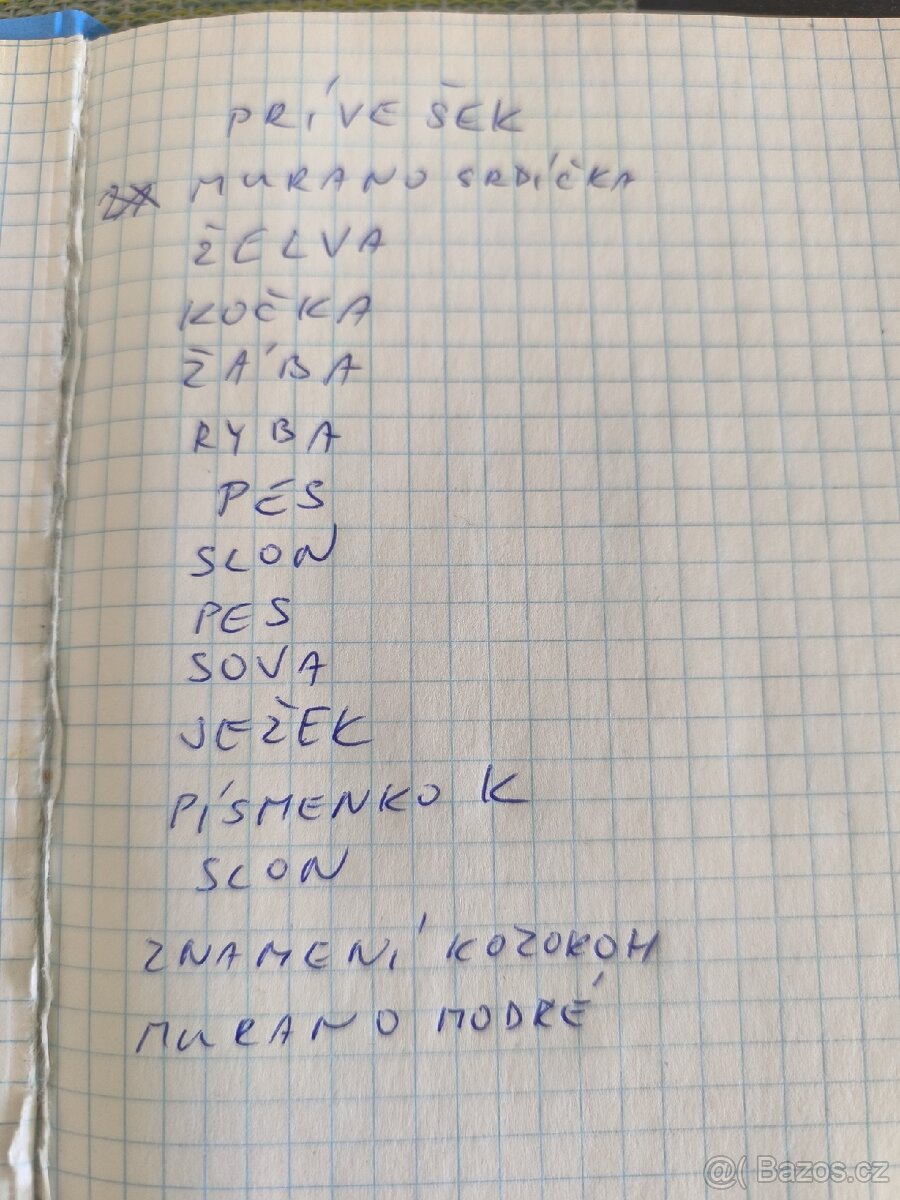 PRÍVEŠEK
MURANO SRDÍČKA
ŽELVA
KOČKA
ŽÁBA
RYBA
PES
SLON
PES
SOVA
JEŽEK
PÍSMENKO K
SLON
ZNAMENÍ KOZOROH
MURANO MODRÉ
@( Bazos.cz